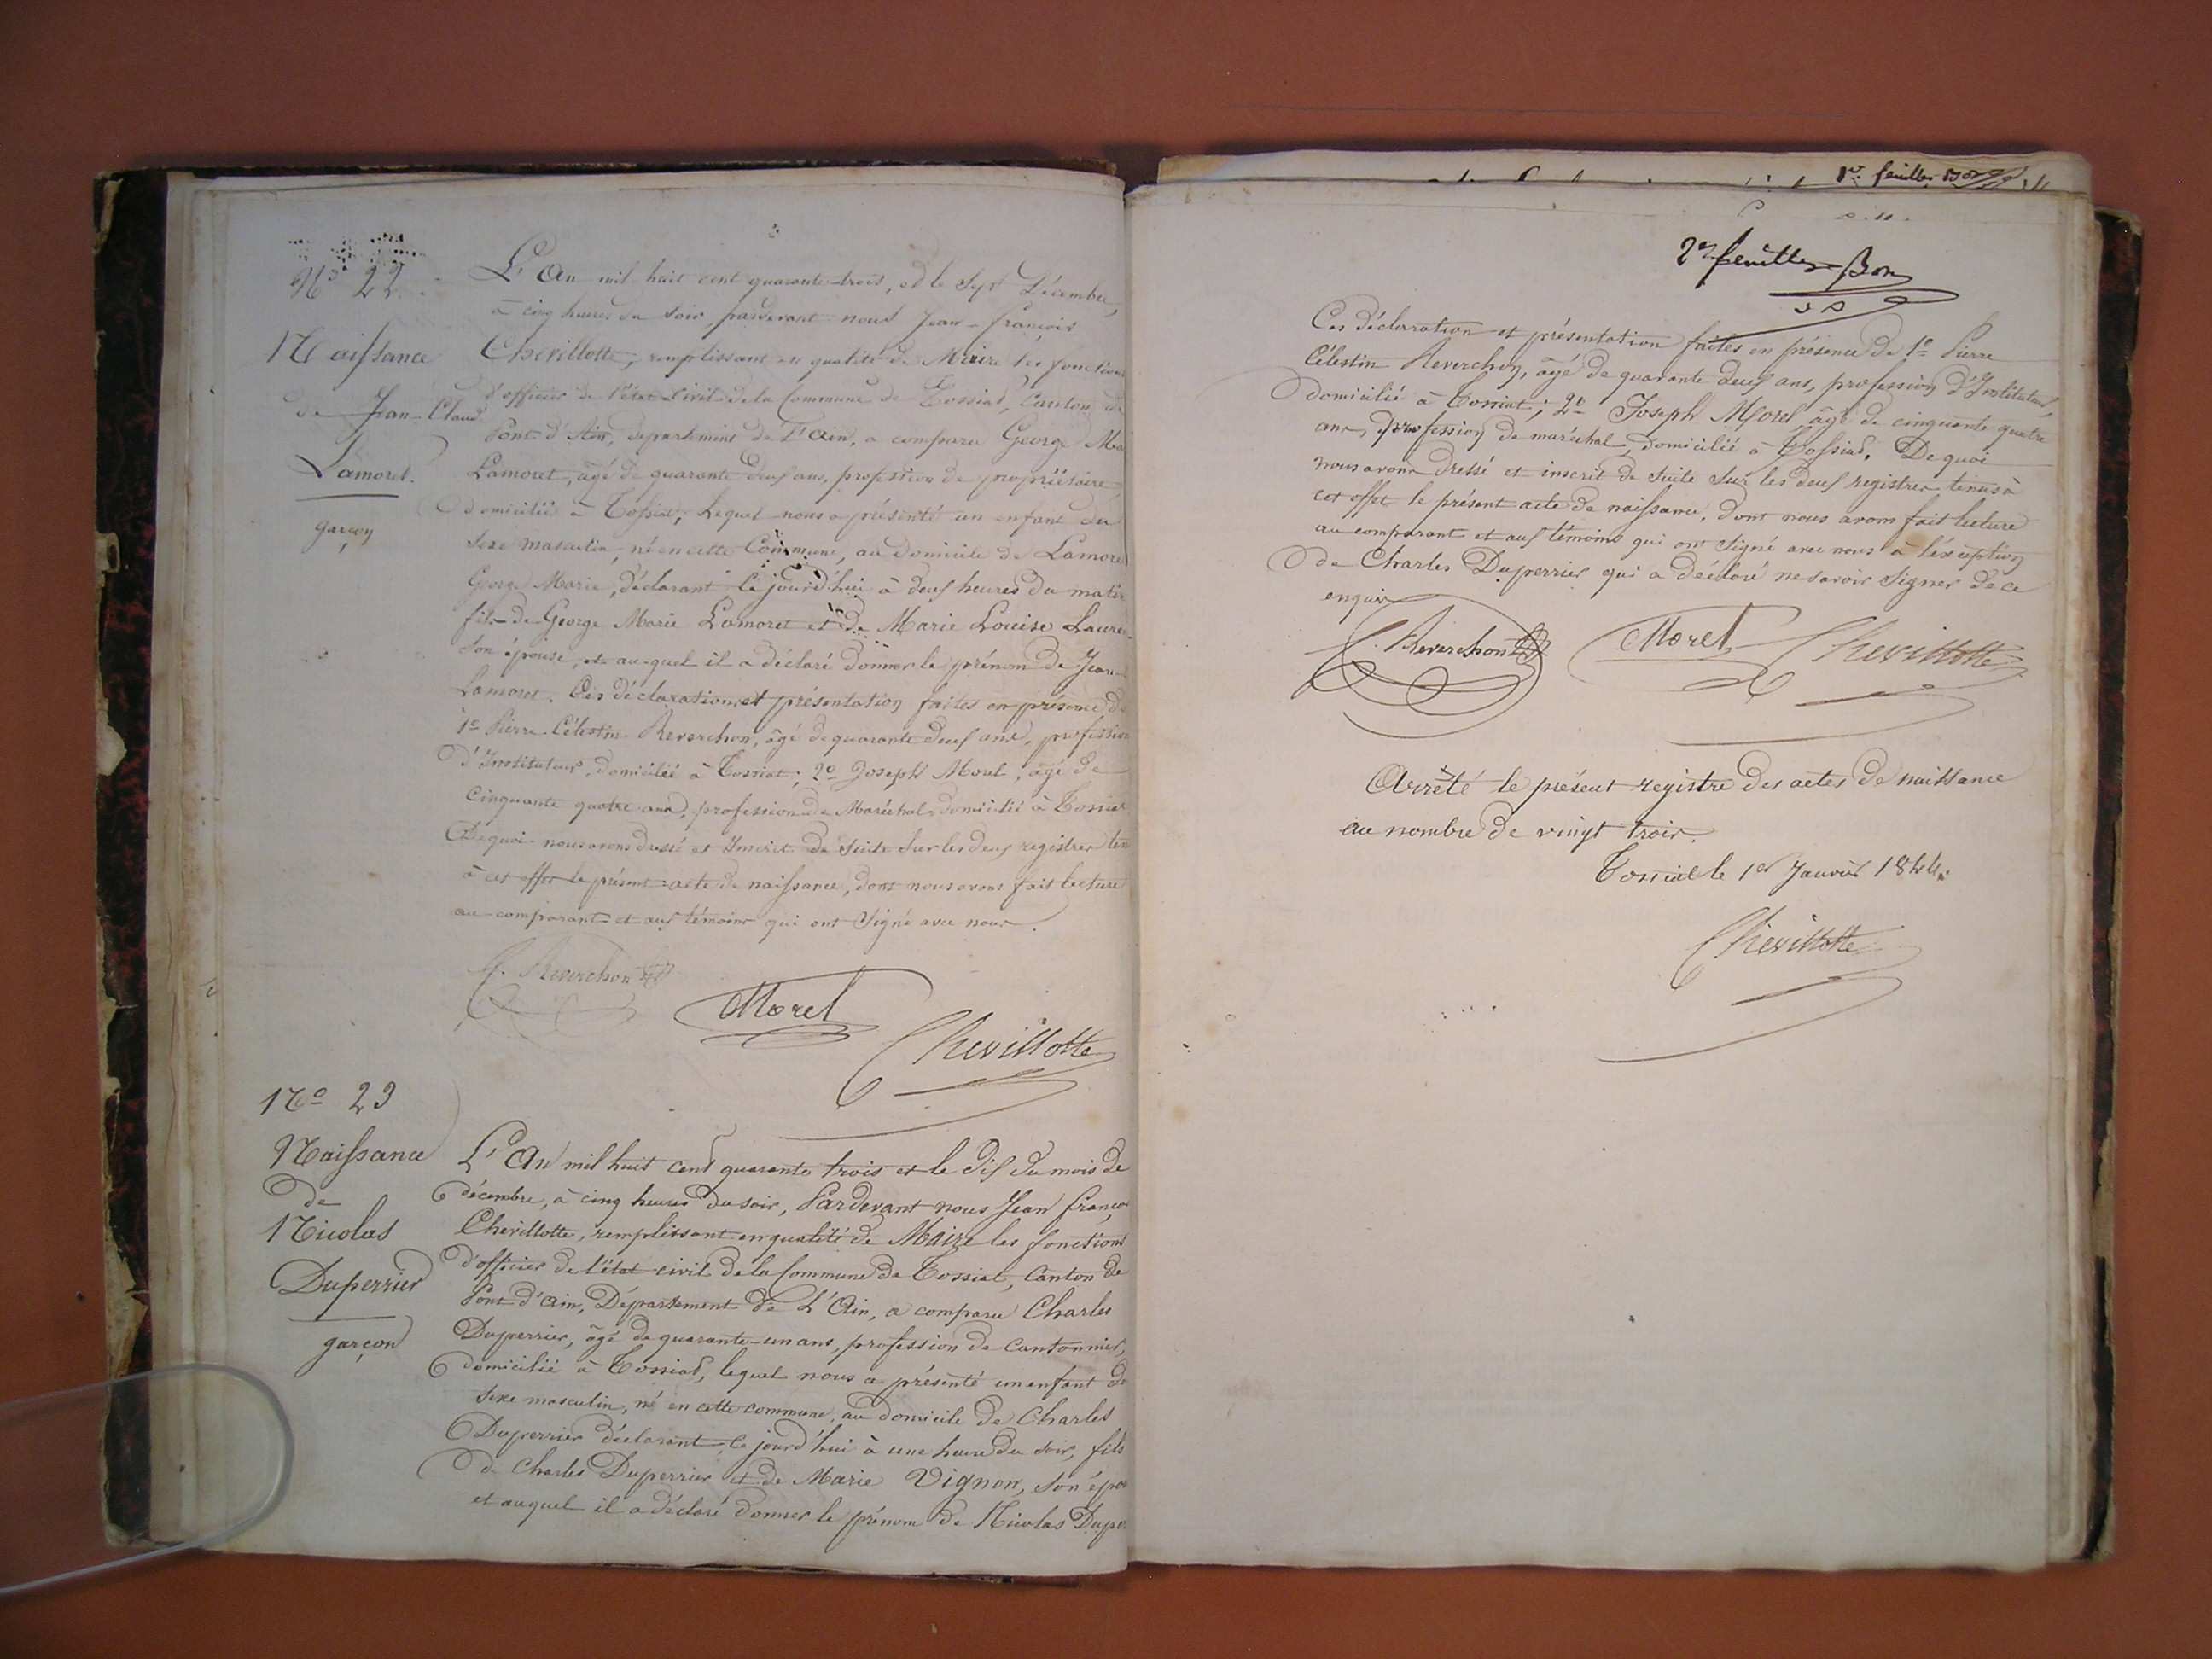 N° 22
Naissance
de Jean-Claud
Lamoret.
garçon
L'An mil huit cent quarante-trois, et le sept Décembre,
à cinq heures du soir, pardevant nous Jean-françois
Chevillotte, remplissant en qualité de Maire les fonctions
d'officier de l'état civil de la Commune de Tossiat, Canton de
Pont-d'Ain, département de l'Ain, a comparu George Ma
Lamoret, âgé de quarante deux ans, profession de propriétaire,
domicilié à Tossiat, Lequel nous a présenté un enfant du
sexe masculin, né en cette Commune, au domicile de Lamoret
George Marie, déclarant ce jourd'hui à deux heures du matin
fils de George Marie Lamoret et de Marie Louise Lauren
son épouse, et au-quel il a déclaré donner le prénom de Jean-
Lamoret. Ces déclaration et présentation faites en présence de
1° Pierre Célestin Reverchon, âgé de quarante deux ans, profession
d'Instituteur, domicilié à Tossiat; 2° Joseph Morel, âgé de
cinquante quatre ans, profession de Maréchal, domicilié à Tossiat
De quoi nous avons dressé et Inscrit de suite sur les deux registres ten
à cet effet le présent acte de naissance, dont nous avons fait lecture
au comparant et aux témoins qui ont signé avec nous.
C. Reverchon
Morel
Chevillotte
N° 23
Naissance
de
Nicolas
Duperrier
garçon
L'An mil huit cent quarante trois et le dix du mois de
décembre, à cinq heures du soir, Pardevant nous Jean françois
Chevillotte, remplissant en qualité de Maire les fonctions
d'officier de l'état civil de la Commune de Tossiat, Canton de
Pont-d'Ain, Département de L'Ain, a comparu Charles
Duperrier, âgé de quarante-un ans, profession de Cantonnier,
domicilié à Tossiat, lequel nous a présenté un enfant du
sexe masculin, né en cette commune, au domicile de Charles
Duperrier déclarant, ce jourd'hui à une heure du soir, fils
de Charles Duperrier et de Marie Vignon, son épou
et auquel il a déclaré donner le prénom de Nicolas Duper
2e feuillet Bon
Ces déclaration et présentation faites en présence de 1° Pierre
Célestin Reverchon, âgé de quarante deux ans, profession d'Instituteur,
domicilié à Tossiat; 2° Joseph Morel, âgé de cinquante quatre
ans, profession de maréchal, domicilié à Tossiat. De quoi
nous avons dressé et inscrit de suite sur les deux registres tenus à
cet effet le présent acte de naissance, dont nous avons fait lecture
au comparant et aux témoins qui ont signé avec nous à l'exception
de Charles Duperrier qui a déclaré ne savoir signer de ce
enquis
C. Reverchon
Morel
Chevillotte
Arrêté le présent registre des actes de naissance
au nombre de vingt trois.
Tossiat le 1er Janvier 1844.
Chevillotte